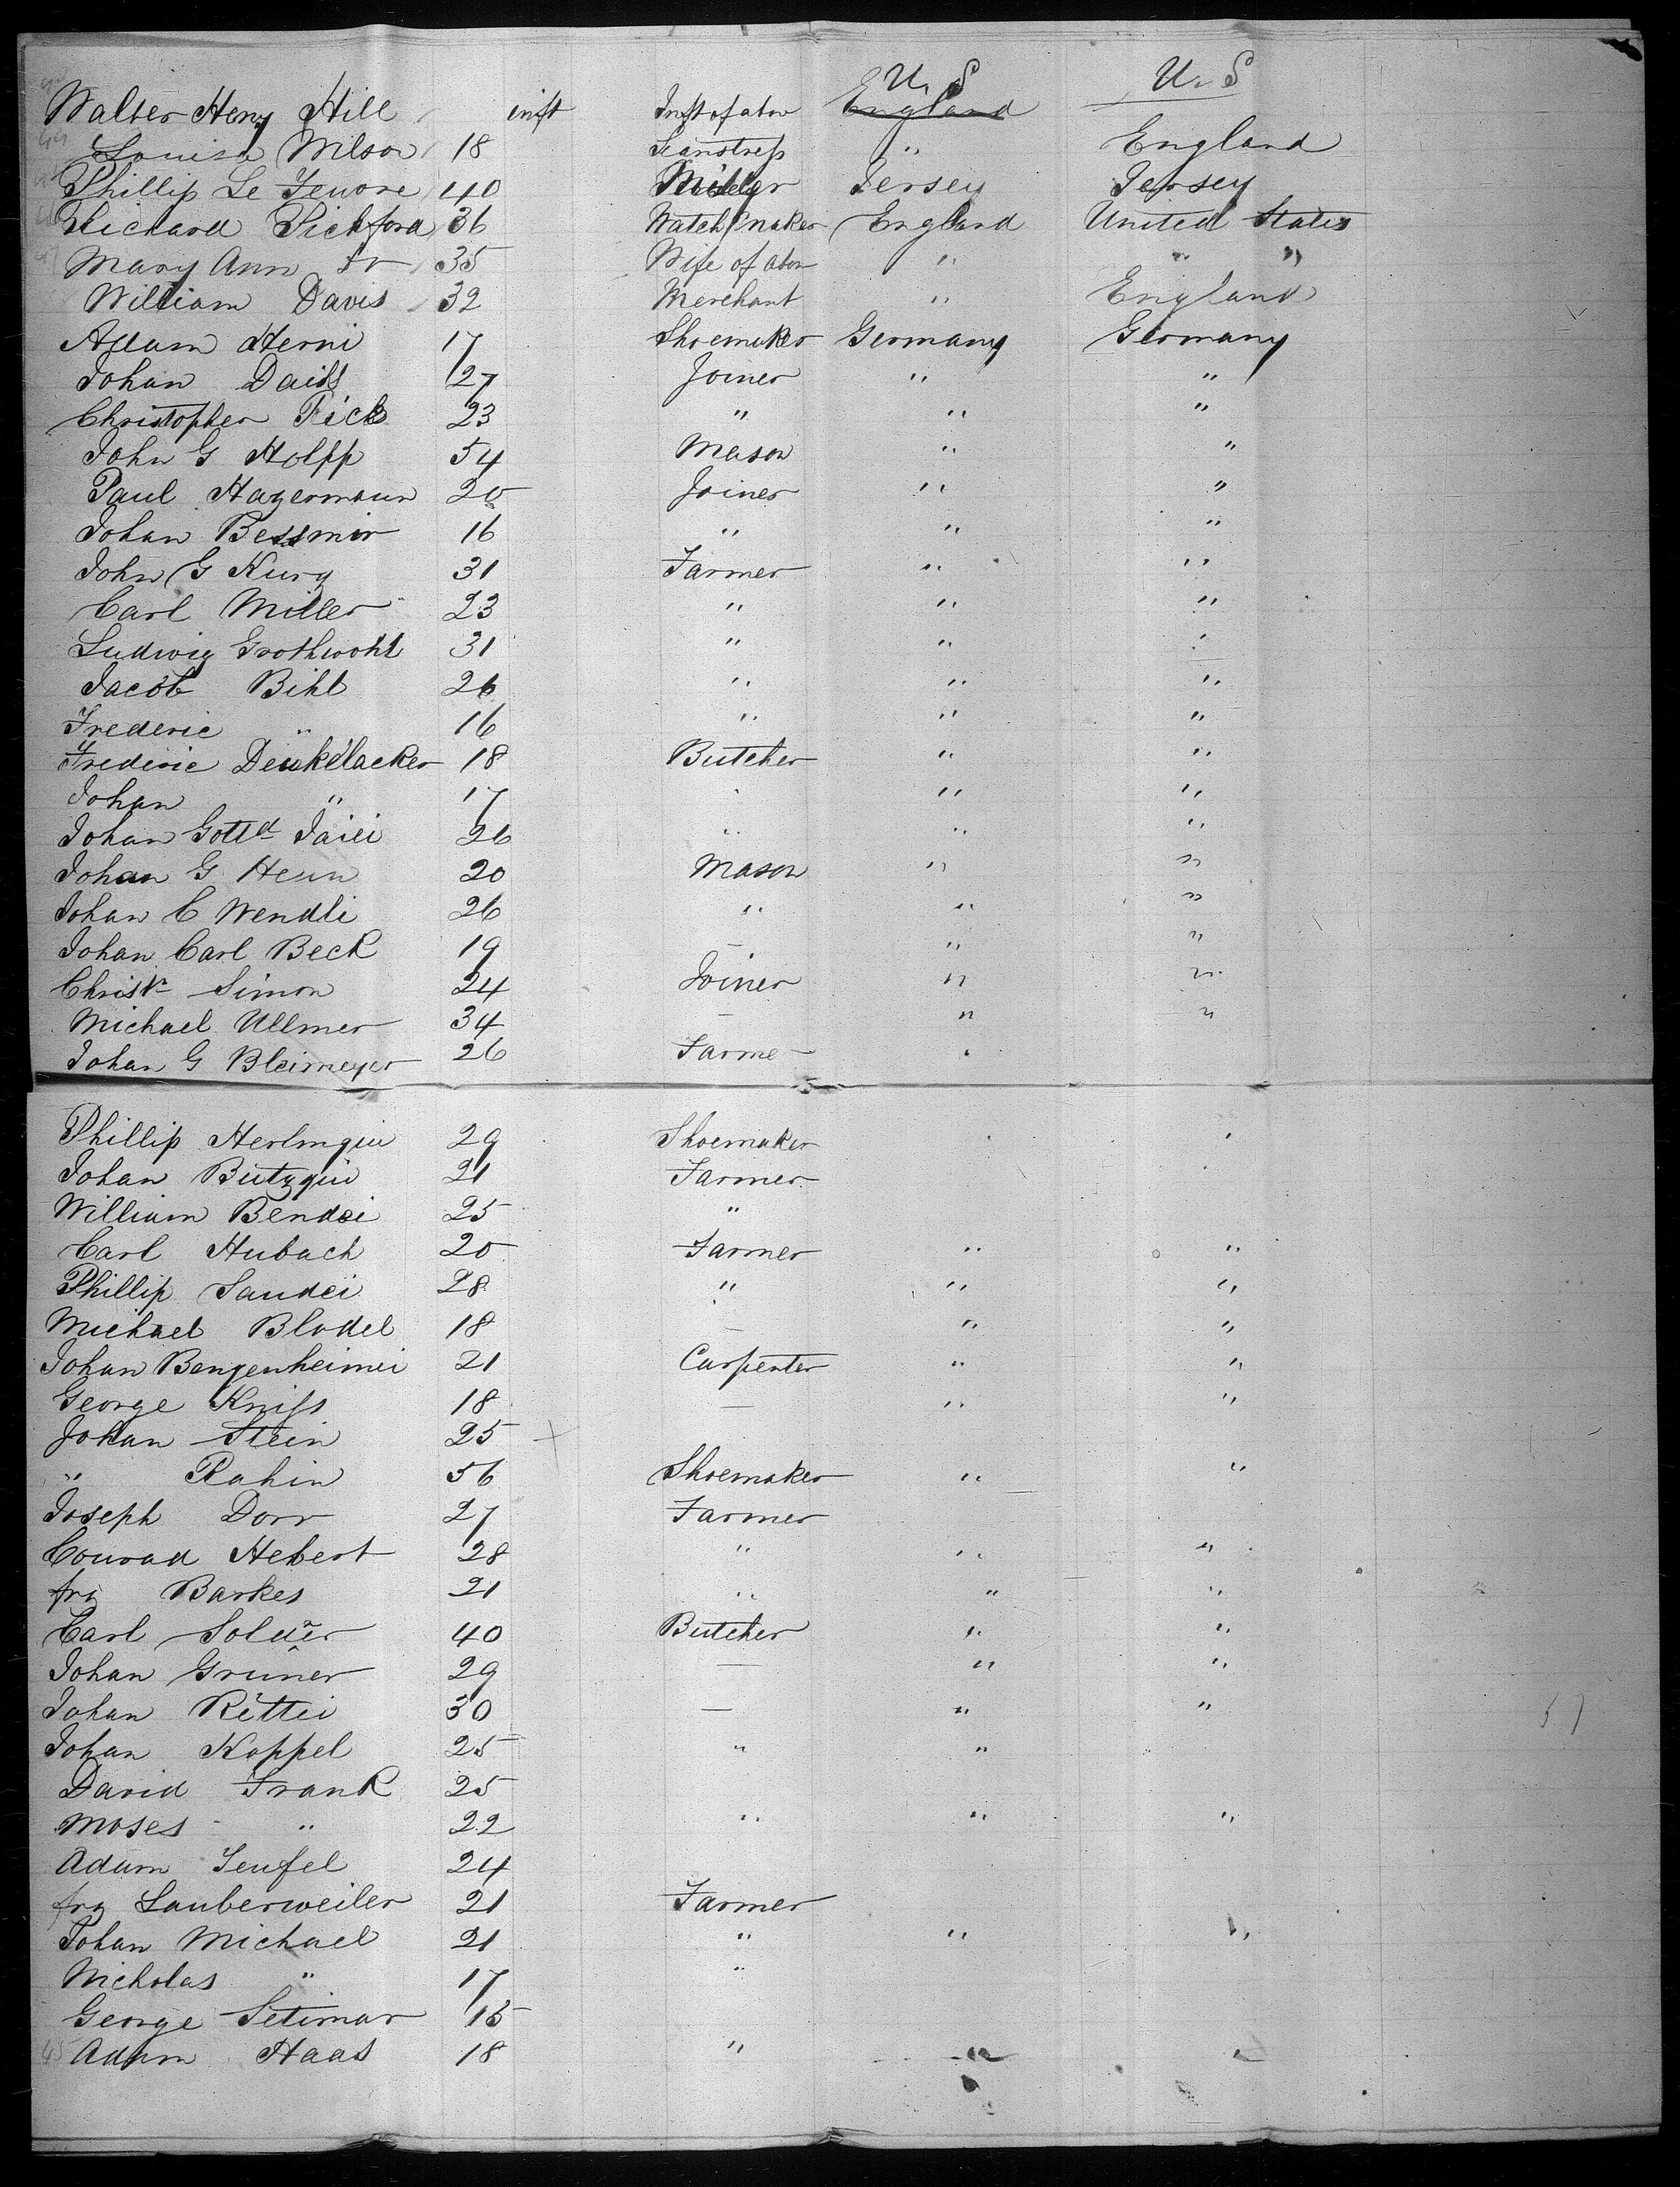 U. S U. S
Walter Heny Hill inft Inft of abov England
Louisa Wilson 18 Seamstress " England
Phillip Le Feuvre 40 Jersey Jersey
Richard Pickford 36 Watch maker England United States
Mary Ann Do 35 Wife of abov " " "
William Davis 32 Merchant " England
Adam Herni 17 Shoemaker Germany Germany
Johan Daiss 27 Joiner " "
Christopher Fick 23 " " "
John G Holpp 54 Mason " "
Paul Hagermann 20 Joiner " "
Johan Bessmir 16 " " "
John G Kurz 31 Farmer " "
Carl Miller 23 " " "
Ludwig Grothwohl 31 " " "
Jacob Bihl 26 " " "
Frederic " 16 " " "
Frederic Deukelacker 18 Butcher " "
Johan " 17 " " "
Johan Gottd 26 " " "
Johan G Heun 20 Mason " "
Johan C Wendli 26 " " "
Johan Carl Beck 19 – " "
Christn Simon 24 Joiner " "
Michael Ullmer 34 – " "
Johan G Bleimeyer 26 Farme "
Phillip 29 Shoemaker
Johan 21 Farmer
William Bendei 25 "
Carl Hubach 20 Farmer " "
Phillip Saudei 28 " " "
Michael Blodel 18 – " "
Johan Bengenheimei 21 Carpenter " "
George Kniss 18 – " "
Johan Stein 25 +
" Rahin 56 Shoemaker " "
Joseph Dorr 27 Farmer
Conrad Hebert 28 " " "
frz Barkes 21 " " "
Carl 40 Butcher " "
Johan Gruner 29 – " "
Johan Rittei 30 – " "
Johan Koppel 25 " "
David Frank 25
Moses " 22 " " "
Adam Teufel 24
frz Lauberweiler 21 Farmer
Johan Michael 21 " " "
Nicholas " 17 "
George Setimar 15
45 Adam Haas 18 " " "